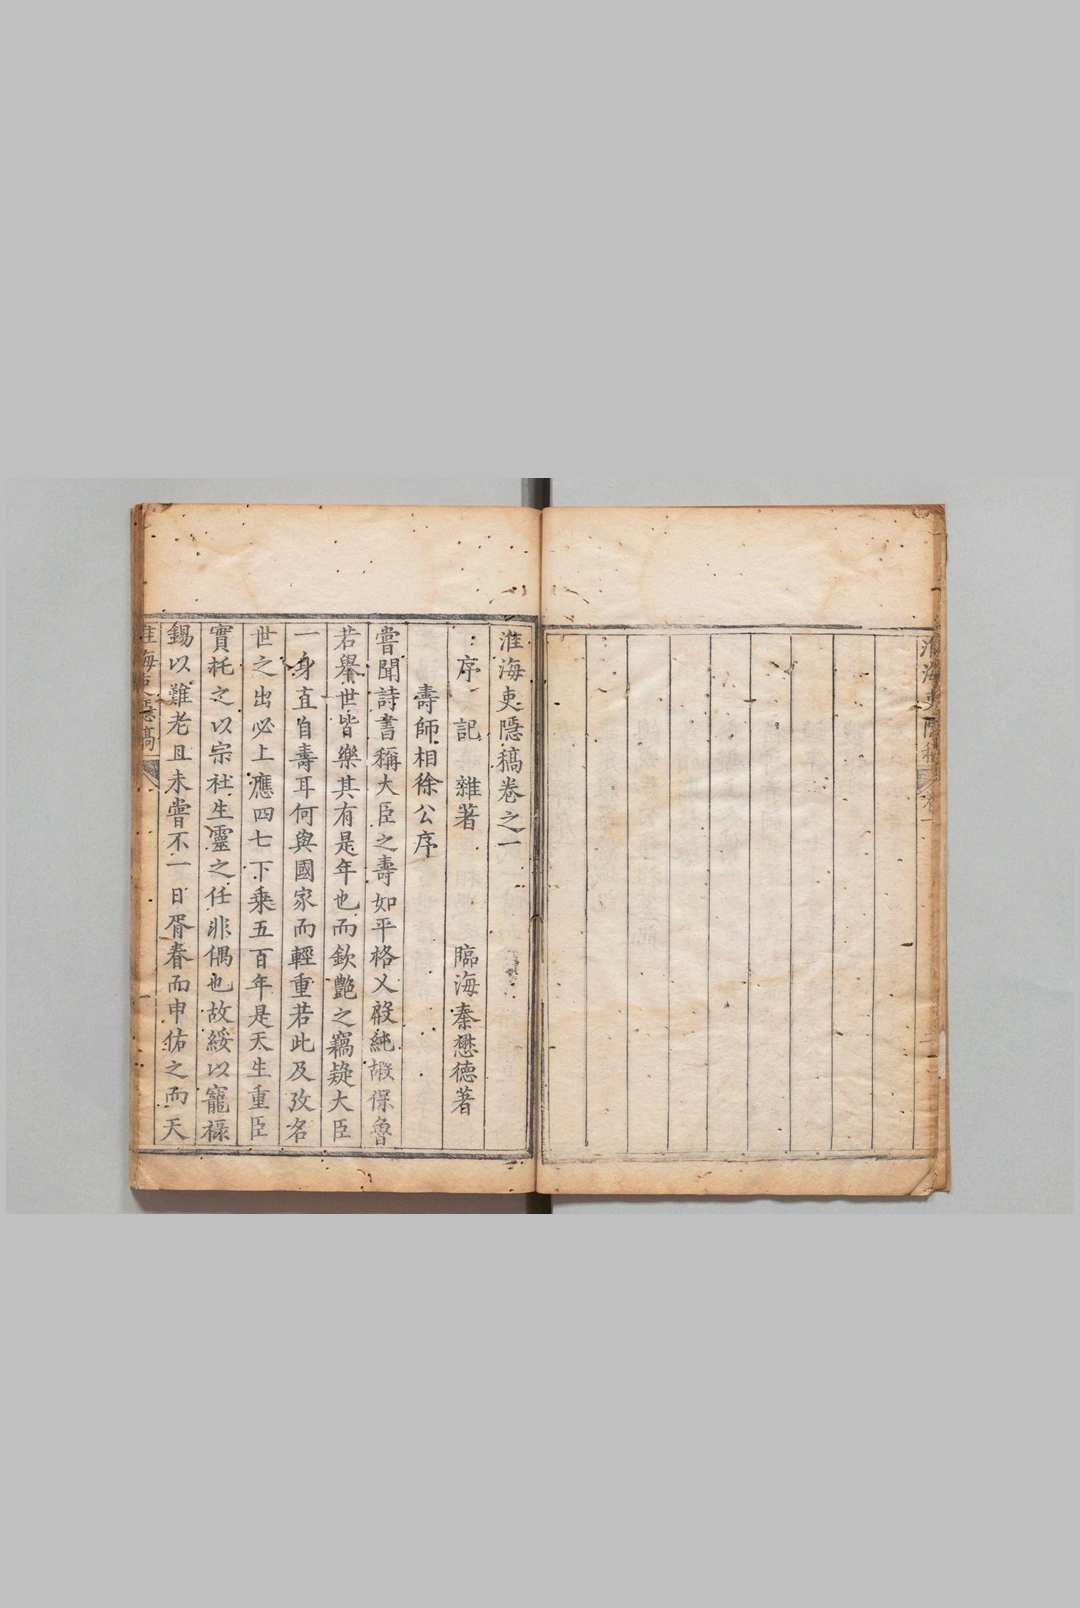 淮海吏隱稿
卷一
淮海吏隱稿卷之一
序 記 雜著 臨海秦懋德著
壽師相徐公序
嘗聞詩書稱大臣之壽如平格乂殷純嘏保魯
若舉世皆樂其有是年也而欽艷之竊疑大臣
一身直自壽耳何與國家而輕重若此及攷名
世之出必上應四七下乘五百年是天生重臣
實托之以宗社生靈之任非偶也故綏以寵祿
錫以難老且未嘗不一日胥眷而申佑之而天
淮海吏隱稿